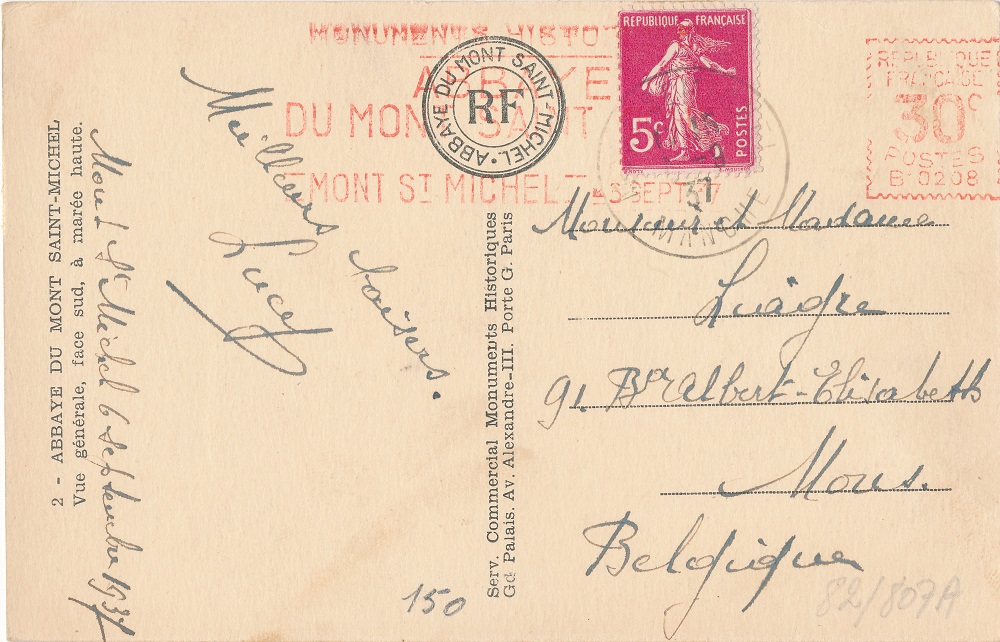 2 - ABBAYE DU MONT SAINT-MICHEL
Vue générale, face sud, à marée haute.
Mont St Michel 6 septembre 1937
Meilleurs baisers.
Lucy
MONUMENTS HISTO
ABBAYE
DU MONT SAINT
MONT ST MICHEL 3 SEPT 37
ABBAYE DU MONT SAINT-MICHEL
RF
RÉPUBLIQUE FRANÇAISE
5c
POSTES
37
MANCHE
REPUBLIQUE
FRANCAISE
30c
POSTES
B 0208
Serv. Commercial Monuments Historiques
Gd Palais. Av. Alexandre-III. Porte G. Paris
Monsieur et Madame
91 Bd Albert-Elisabeth
Mons.
Belgique
150
82/807A